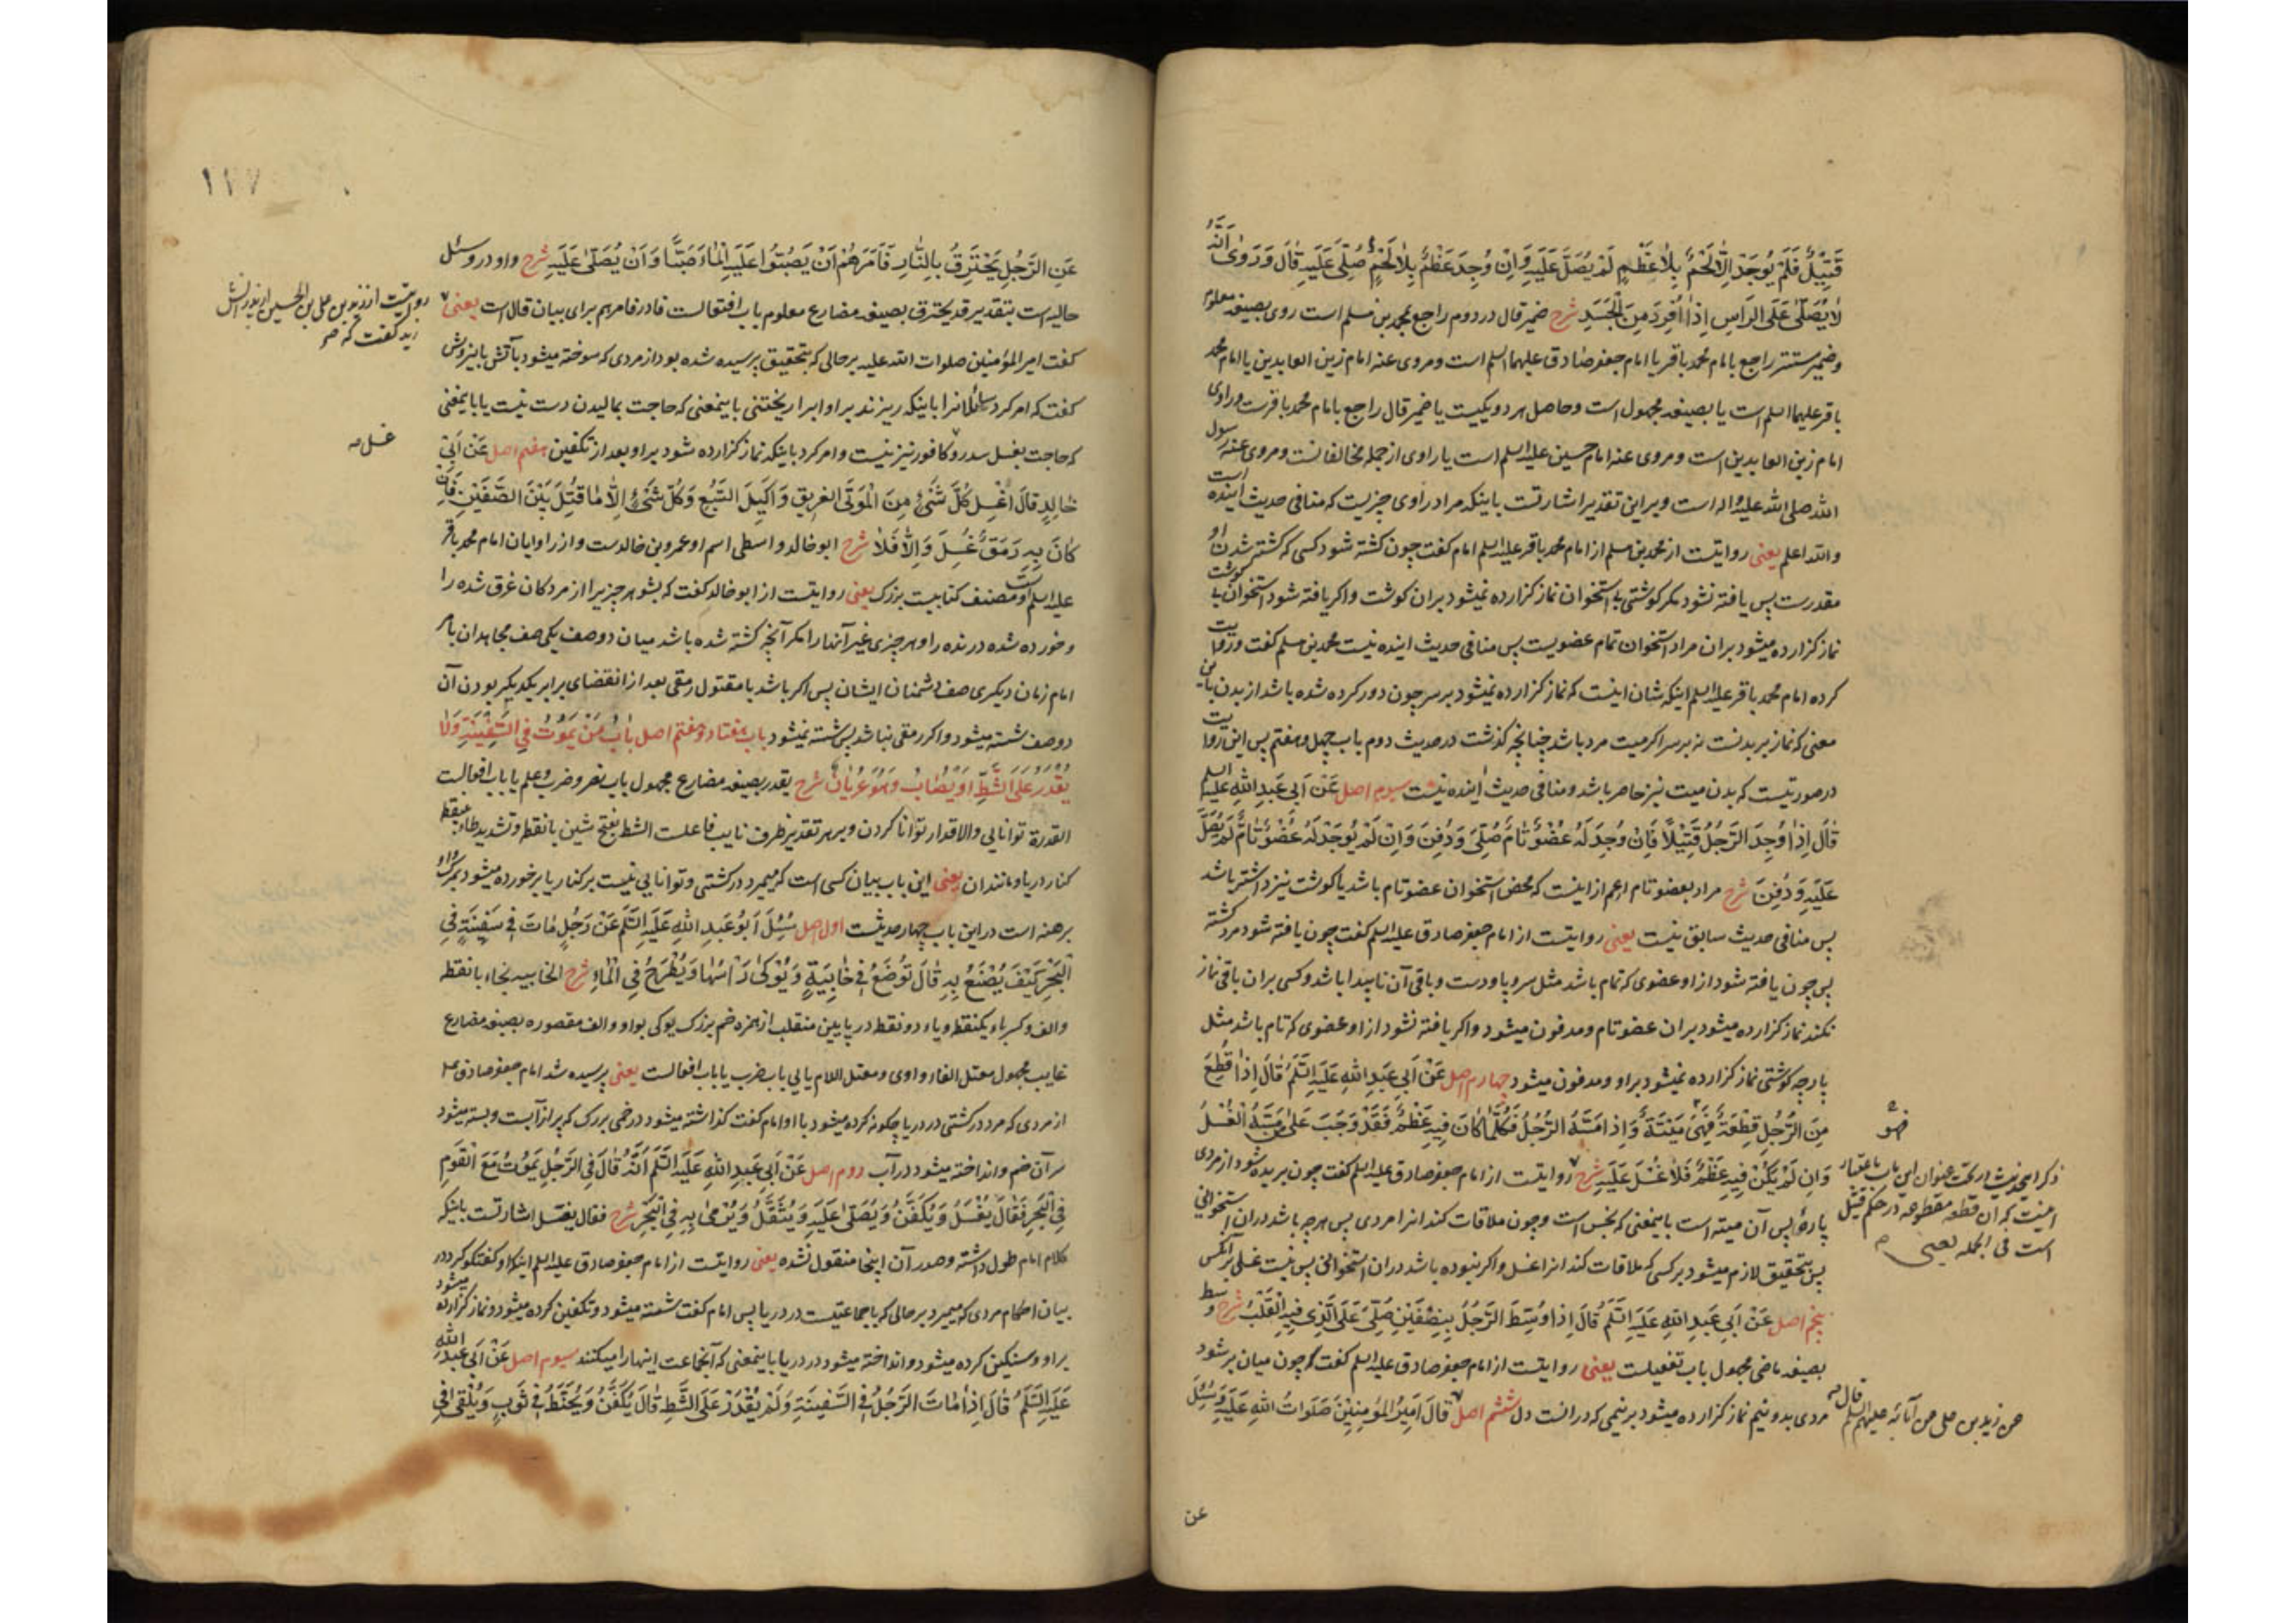 قَتِیْلٌ فَلَمْ یُوجَدْ اِلّٰا لَحْمٌ بِلٰا عَظْمٍ لَمْ یُصَلَّ عَلَیْهِ وَاِنْ وُجِدَ عَظْمٌ بِلٰا لَحْمٍ صُلِّیَ عَلَیْهِ قٰالَ وَرَوٰی اَنَّهُ
لٰا یُصَلّٰی عَلَی الرَّاْسِ اِذٰا اُفْرِدَ مِنَ الْجَسَدِ شرح ضمیر قال در دوم راجع بمحمد بن مسلم است روی بصیغه معلوم
وضمیر مستتر راجع بامام محمد باقر یا امام جعفر صادق علیهما السلم است ومروی عنه امام زین العابدین یا امام محمد
باقر علیهما السلم است یا بصیغه مجهول است وحاصل هر دو یکیست یا ضمیر قال راجع بامام محمد باقرست وراوی
امام زین العابدین است ومروی عنه امام حسین علیه السلم است یا راوی از جمله مخالفانست ومروی عنه رسول
الله صلی الله علیه واله است وبر این تقدیر اشارتست باینکه مراد راوی چیزیست که منافی حدیث آینده است
والله اعلم یعنی روایتست از محمد بن مسلم از امام محمد باقر علیه السلم امام گفت چون کشته شود کسی که کشته شدن او
مقدرست پس یافته نشود مکر کوشتی بی استخوان نماز کزارده نمیشود بران کوشت واکر یافته شود استخوان بی کوشت
نماز کزارده میشود بران مراد استخوان تمام عضویست پس منافی حدیث اینده نیست محمد بن مسلم کفت وروایت
کرده امام محمد باقر علیه السلم اینکه شان اینست که نماز کزارده نمیشود بر سر چون دور کرده شده باشد از بدن باین
معنی که نماز بر بدنست نه بر سر اکر میت مرد باشد چنانچه کذشت در حدیث دوم باب چهل وهفتم پس این روایت
در صورتیست که بدن میت نیز حاضر باشد ومنافی حدیث اینده نیست سیوم اصل عَنْ اَبِی عَبْدِ اللّٰهِ عَلَیْهِ السلم
قٰالَ اِذٰا وُجِدَ الرَّجُلُ قَتِیْلًا فَاِنْ وُجِدَ لَهُ عُضْوٌ تٰامٌّ صُلِّیَ وَدُفِنَ وَاِنْ لَمْ یُوجَدْ لَهُ عُضْوٌ تٰامٌّ لَمْ یُصَلَّ
عَلَیْهِ وَدُفِنَ شرح مراد بعضو تام اعم از اینست که محض استخوان عضو تام باشد یا کوشت نیز داشته باشد
پس منافی حدیث سابق نیست یعنی روایتست از امام جعفر صادق علیه السلم کفت چون یافته شود مرد کشته
پس چون یافته شود از او عضوی که تمام باشد مثل سر وپا ودست وباقی آن ناپیدا باشد وکسی بران باقی نماز
نکند نماز کزارده میشود بران عضو تام ومدفون میشود واکر یافته نشود از او عضوی که تام باشد مثل
پارچه کوشتی نماز کزارده نمیشود بر او ومدفون میشود چهارم اصل عَنْ اَبِی عَبْدِ اللّٰهِ عَلَیْهِ السَّلَمُ قٰالَ اِذٰا قُطِعَ
مِنَ الرَّجُلِ قِطْعَةٌ فَهِیَ مَیْتَةٌ وَاِذٰا مَسَّهُ الرَّجُلُ فَکُلَّمٰا کٰانَ فِیهِ عَظْمٌ فَقَدْ وَجَبَ عَلٰی مَنْ مَسَّهُ الْغُسْلُ
وَاِنْ لَمْ یَکُنْ فِیهِ عَظْمٌ فَلٰا غُسْلَ عَلَیْهِ شرح روایتست از امام جعفر صادق علیه السلم کفت چون بریده شود از مردی
ذکر این حدیث در تحت عنوان این باب باعتبار
اینست که ان قطعه مقطوعه در حکم قتیل
است فی الجمله یعنی
پارهٔ پس آن میته است باینمعنی که نجس است وچون ملاقات کند انرا مردی پس هرچه باشد دران استخوانی
پس بتحقیق لازم میشود بر کسی که ملاقات کند انرا غسل واکر نبوده باشد دران استخوانی پس نیست غسلی بر آنکس
پنجم اصل عَنْ اَبِی عَبْدِ اللّٰهِ عَلَیْهِ السَّلَمُ قٰالَ اِذٰا وُسِّطَ الرَّجُلُ بِنِصْفَیْنِ صُلِّیَ عَلَی الَّذِی فِیهِ الْقَلْبُ شرح وسط
بصیغه ماضی مجهول باب تفعیلست یعنی روایتست از امام جعفر صادق علیه السلم کفت که چون میان بر شود
مردی بدو نیم نماز کزارده میشود بر نیمی که در انست دل ششم اصل قٰالَ اَمِیْرُ الْمُؤْمِنِیْنَ صَلَوٰاتُ اللّٰهِ عَلَیْهِ وَسُئِلَ
عن زید بن علی عن آبائه علیهم السلم قال
عن
۱۷۷
عَنِ الرَّجُلِ یَحْتَرِقُ بِالنّٰارِ فَاَمَرَهُمْ اَنْ یَصُبُّوا عَلَیْهِ الْمٰاءَ صَبًّا وَاَنْ یُصَلّٰی عَلَیْهِ شرح واو در وسئل
حالیه است بتقدیر قد یحترق بصیغه مضارع معلوم باب افتعالست فا در فامرهم برای بیان قال است یعنی
روایتست از زید بن علی بن الحسین از پدرانش
کفت امیر المؤمنین صلوات الله علیه بر حالی که بتحقیق پرسیده شده بود از مردی که سوخته میشود بآتش باینروش
کفت که امر کرد سائلانرا باینکه ریزند بر او اب را ریختنی باینمعنی که حاجت بمالیدن دست نیست یا باینمعنی
که حاجت بغسل سدر وکافور نیز نیست وامر کرد باینکه نماز کزارده شود بر او بعد از تکفین هفتم اصل عَنْ اَبِی
غسل
خٰالِدٍ قٰالَ اغْسِلْ کُلَّ شَیْءٍ مِنَ الْمَوْتَی الْغَرِیقِ وَاَکِیلِ السَّبُعِ وَکُلَّ شَیْءٍ اِلّٰا مٰا قُتِلَ بَیْنَ الصَّفَّیْنِ فَاِنْ
کٰانَ بِهِ رَمَقٌ غُسِلَ وَاِلّٰا فَلٰا شرح ابو خالد واسطی اسم او عمرو بن خالدست واز راویان امام محمد باقر
علیه السلم است ومصنف کتابیست بزرک یعنی روایتست از ابو خالد کفت که بشو هر چیزیرا از مردکان غرق شده را
وخورده شده درنده را وهر چیزی غیر آنها را مکر آنچه کشته شده باشد میان دو صف یکی صف مجاهدان بامر
امام زمان ودیکری صف دشمنان ایشان پس اکر باشد با مقتول رمقی بعد از انقضای برابر یکدیکر بودن آن
دو صف شسته میشود واکر رمقی نباشد پس شسته نمیشود باب هفتاد وهفتم اصل بٰابُ مَنْ یَمُوتُ فِی السَّفِیْنَةِ وَلٰا
یُقْدَرُ عَلَی الشَّطِّ اَوْ یُصٰابُ وَهُوَ عُرْیٰانٌ شرح یقدر بصیغه مضارع مجهول باب نصر وضرب وعلم یا باب افعالست
القدرة توانایی والاقدار توانا کردن وبر هر تقدیر ظرف نایب فاعلست الشط بفتح شین بانقطه وتشدید طاء بینقطه
کنار دریا ومانند ان یعنی این باب بیان کسی است که میمیرد در کشتی وتوانایی نیست بر کنار یا بر خورده میشود بمرک واو
برهنه است در این باب چهار حدیثست اول اصل سُئِلَ اَبُو عَبْدِ اللّٰهِ عَلَیْهِ السَّلَمُ عَنْ رَجُلٍ مٰاتَ فِی سَفِیْنَةٍ فِی
الْبَحْرِ کَیْفَ یُصْنَعُ بِهِ قٰالَ تُوضَعُ فِی خٰابِیَةٍ وَیُوکٰی رَاْسُهٰا وَیُطْرَحُ فِی الْمٰاءِ شرح الخابیه بخاء بانقطه
والف وکسر باء یکنقطه ویاء دو نقطه در پایین منقلب از همزه خم بزرک یوکی بواو والف مقصوره بصیغه مضارع
غایب مجهول معتل الفاء واوی ومعتل اللام یایی باب ضرب یا باب افعالست یعنی پرسیده شد امام جعفر صادق ع
از مردی که مرد در کشتی در دریا چکونه کرده میشود با او امام کفت کذاشته میشود در خمی بزرک که پر از آبست وبسته میشود
سر آن خم وانداخته میشود در آب دوم اصل عَنْ اَبِی عَبْدِ اللّٰهِ عَلَیْهِ السَّلَمُ اَنَّهُ قٰالَ فِی الرَّجُلِ یَمُوتُ مَعَ الْقَوْمِ
فِی الْبَحْرِ فَقٰالَ یُغْسَلُ وَیُکَفَّنُ وَیُصَلّٰی عَلَیْهِ وَیُثَقَّلُ وَیُرْمٰی بِهِ فِی الْبَحْرِ شرح فقال یغسل اشارتست باینکه
کلام امام طول داشته وصدر آن اینجا منقول نشده یعنی روایتست از امام جعفر صادق علیه السلم اینکه او کفتکو کرد در
بیان احکام مردی که میمیرد بر حالی که با جماعتیست در دریا پس امام کفت شسته میشود وتکفین کرده میشود ونماز کزارده میشود
بر او وسنکین کرده میشود وانداخته میشود در دریا باینمعنی که آنجماعت اینها را میکنند سیوم اصل عَنْ اَبِی عَبْدِ اللّٰهِ
عَلَیْهِ السَّلَمُ قٰالَ اِذٰا مٰاتَ الرَّجُلُ فِی السَّفِیْنَةِ وَلَمْ یُقْدَرْ عَلَی الشَّطِّ قٰالَ یُکَفَّنُ وَیُحَنَّطُ فِی ثَوْبٍ وَیُلْقٰی فِی